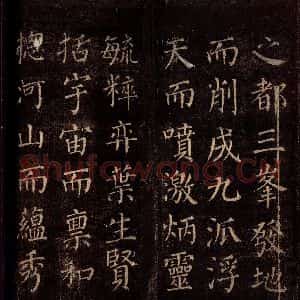 之都三峯發地
而削成九派浮
天而噴激炳靈
毓粹弈葉生賢
括宇宙而禀和
摠河山而蘊秀
Shufawang.CN